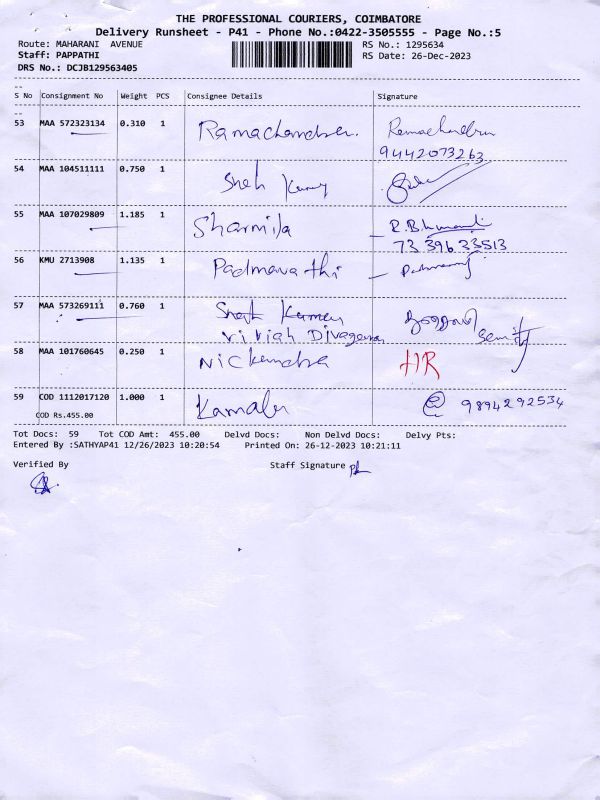 THE PROFESSIONAL COURIERS, COIMBATORE
Delivery Runsheet - P41 - Phone No.:0422-3505555 - Page No.:5
Route: MAHARANI AVENUE RS No.: 1295634
Staff: PAPPATHI RS Date: 26-Dec-2023
DRS No.: DCJB129563405
S No Consignment No Weight PCS Consignee Details Signature
53 MAA 572323134 0.310 1 Ramachandran. Ramachandran
9442073263
54 MAA 104511111 0.750 1
55 MAA 107029809 1.185 1 Sharmila
73 396 33513
56 KMU 2713908 1.135 1 Padmavathi
57 MAA 573269111 0.760 1
58 MAA 101760645 0.250 1 HR
59 COD 1112017120 1.000 1 9894292534
COD Rs.455.00
Tot Docs: 59 Tot COD Amt: 455.00 Delvd Docs: Non Delvd Docs: Delvy Pts:
Entered By :SATHYAP41 12/26/2023 10:20:54 Printed On: 26-12-2023 10:21:11
Verified By Staff Signature